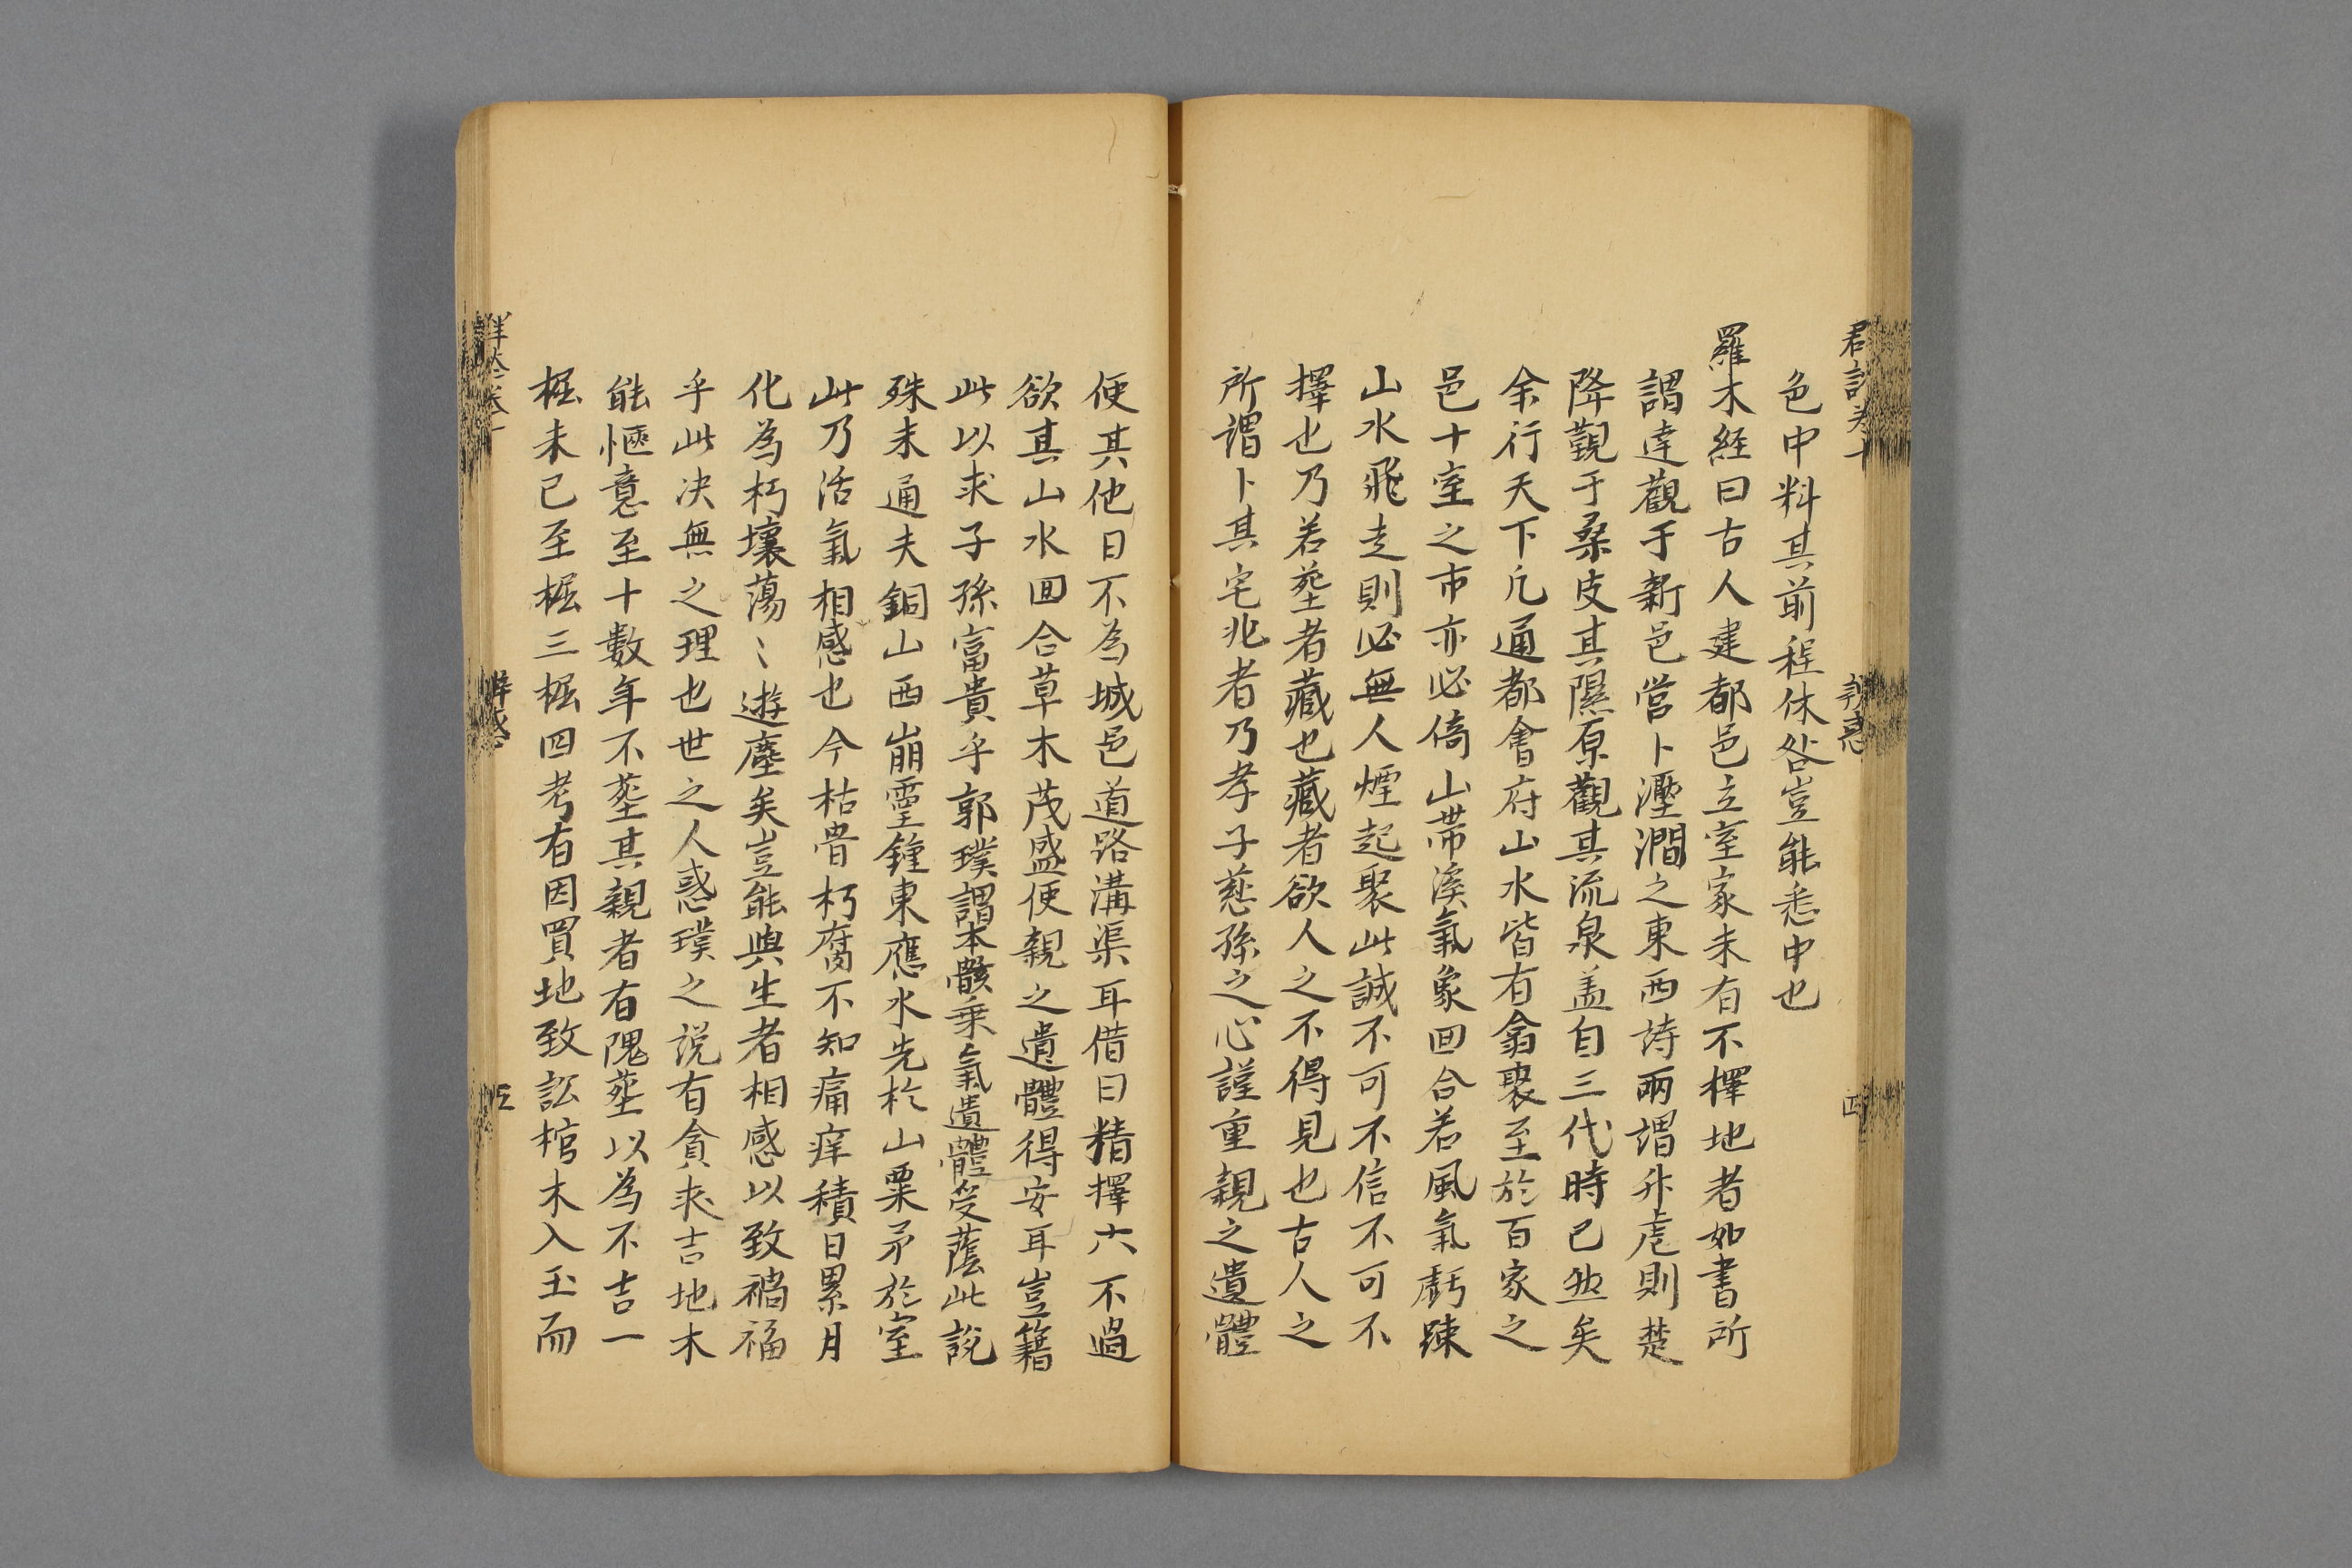 色中料其前程休咎豈能悉中也
羅木經曰古人建都邑立室家未有不擇地者如書所
謂達觀于新邑營卜瀍澗之東西詩兩謂升虛則楚
降觀于桑皮其隰原觀其流泉盖自三代時已然矣
余行天下凢通都會府山水皆有翕聚至於百家之
邑十室之市亦必倚山帶溪氣象囬合若風氣虧踈
山水飛走則必無人煙起聚此誠不可不信不可不
擇也乃若塟者藏也藏者欲人之不得見也古人之
所謂卜其宅兆者乃孝子慈孫之心謹重親之遺體
便其他日不為城邑道路溝渠耳借曰精擇六不過
欲其山水囬合草木茂盛便親之遺體得安耳豈籍
此以求子孫富貴乎郭璞謂本骸乗氣遺體受蔭此說
殊未通夫銅山西崩靈鐘東應水先於山粟矛於室
此乃活氣相感也今枯骨朽腐不知痛痒積日累月
化為朽壤蕩〻遊塵矣豈能與生者相感以致禍福
乎此决無之理也世之人惑璞之説有貪求吉地木
能愜意至十數年不塟其親者有隗塟以為不吉一
掘未已至掘三掘四考有因買地致訟棺木入玉而